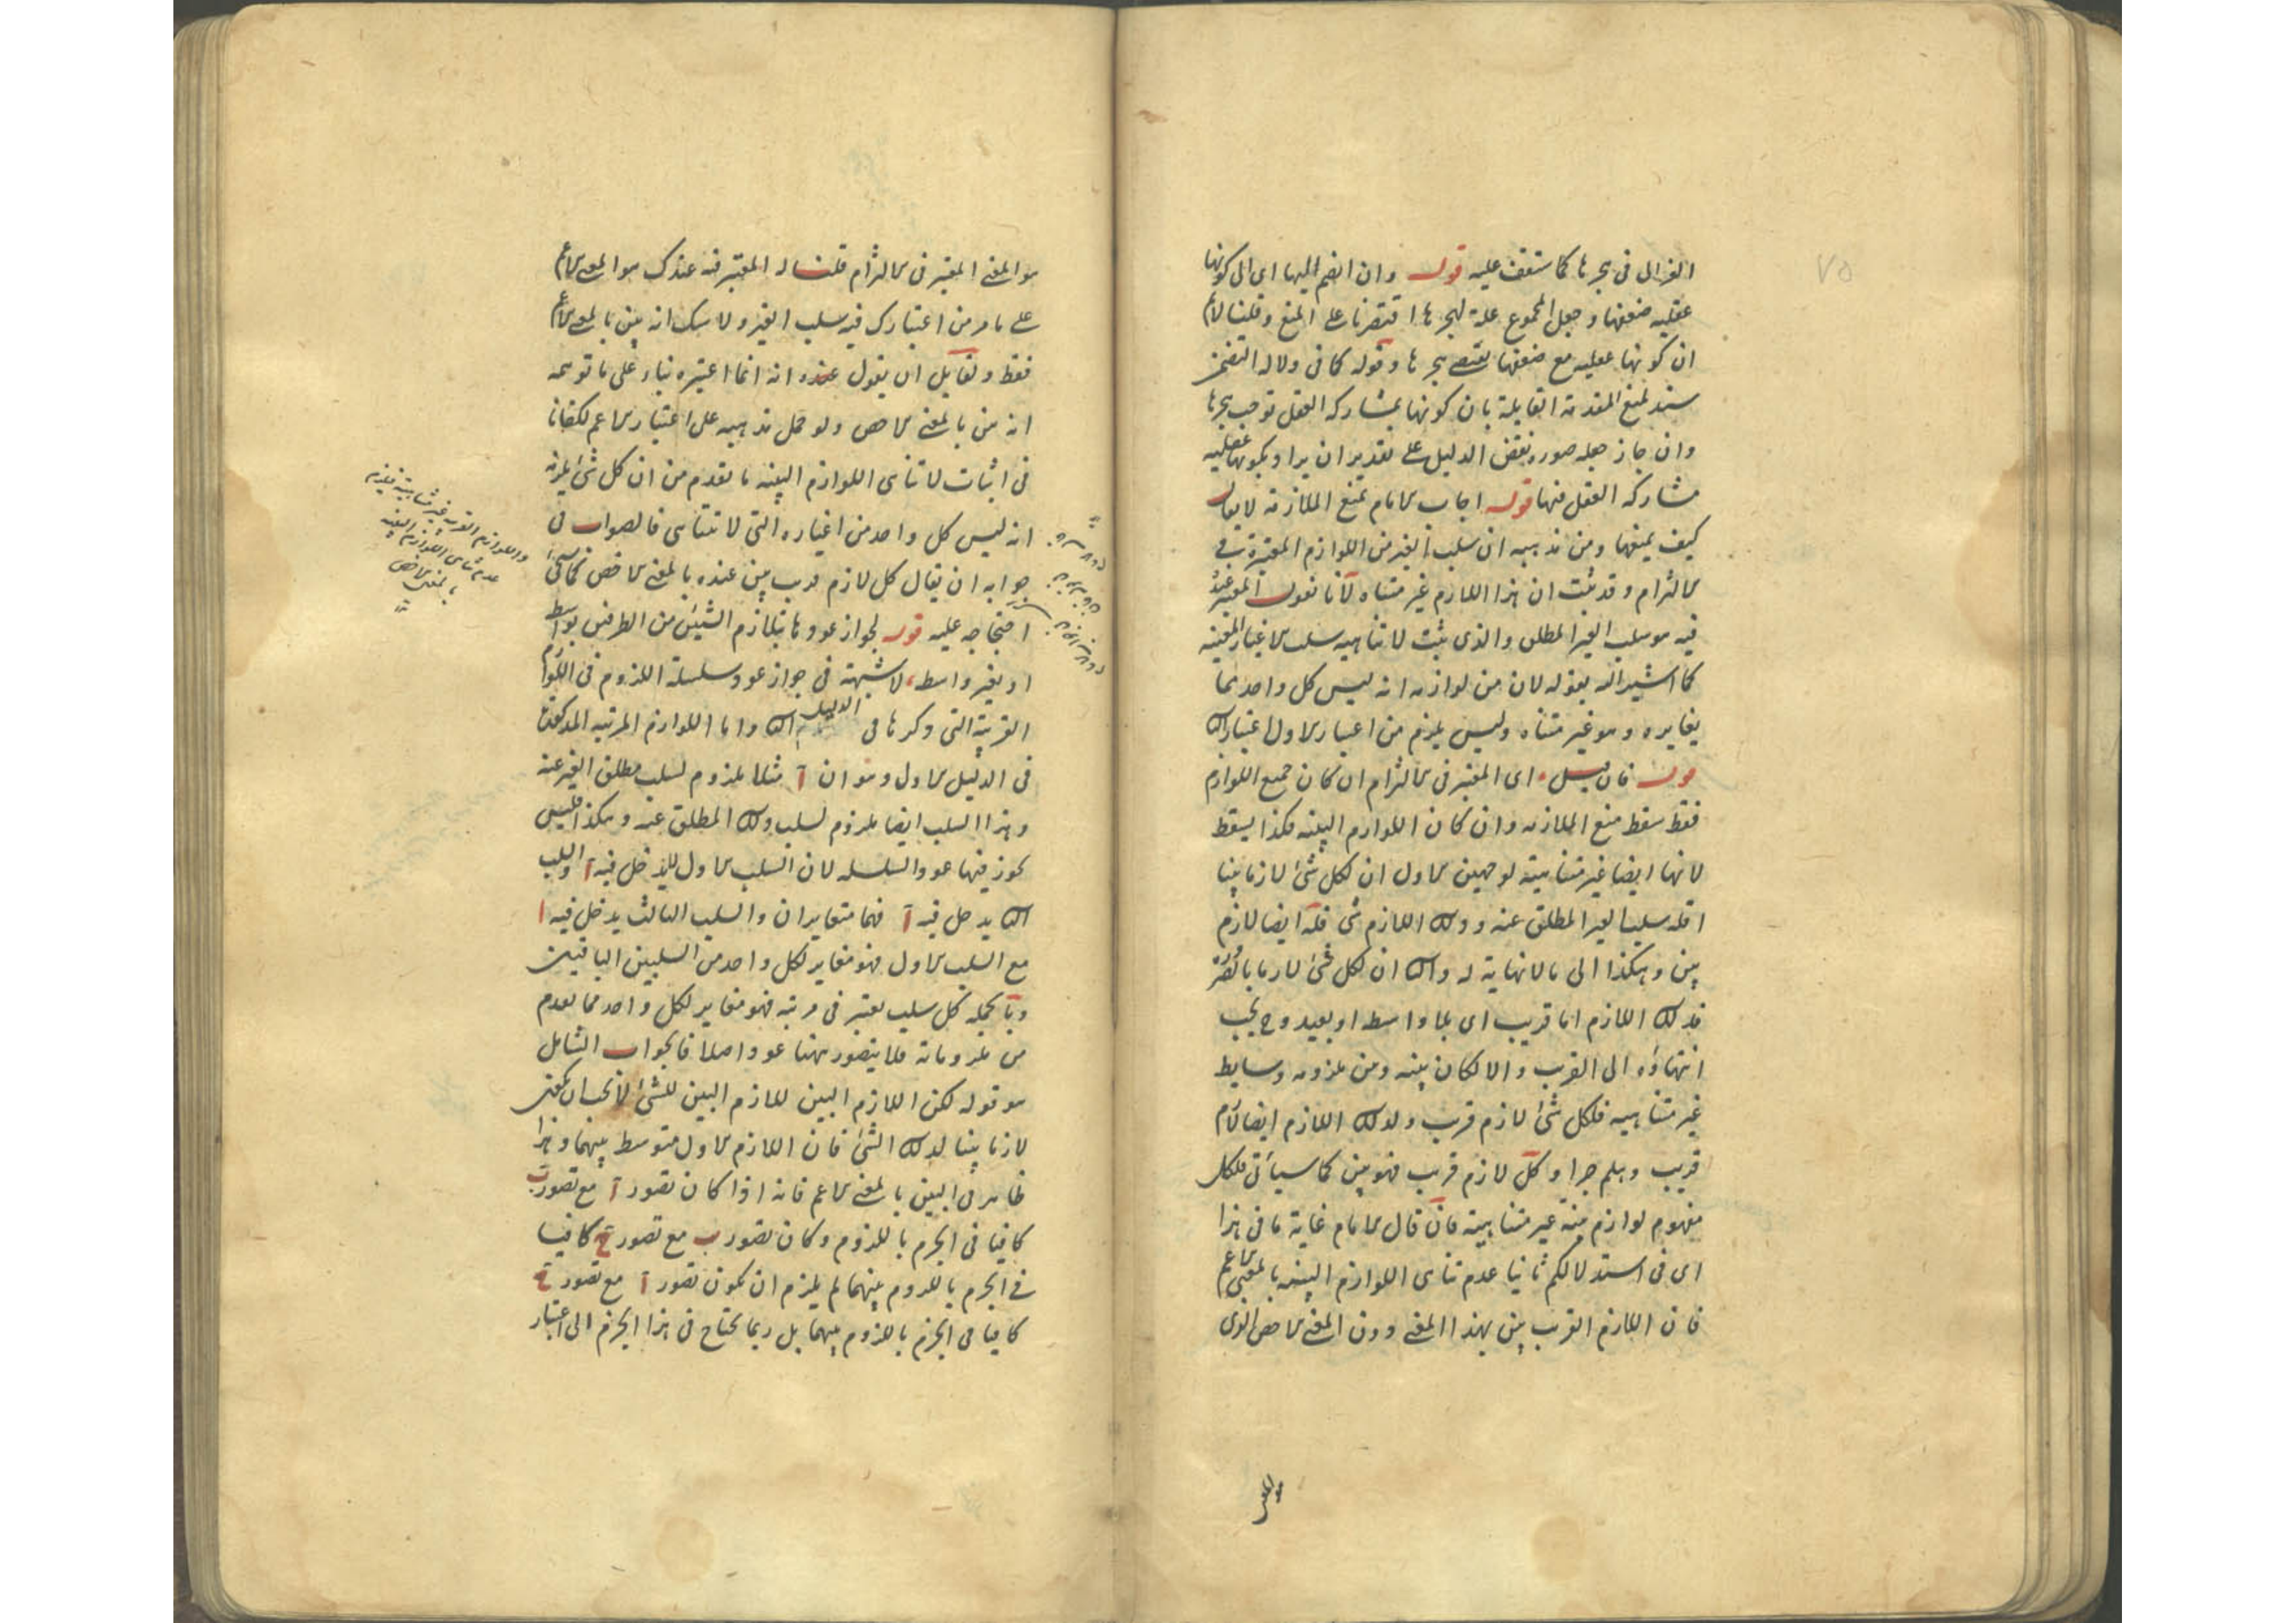 ٧٥
الغزالى فى هجرها كما ستقف عليه قوله وان انضم اليها اى الى كونها
عقليه ضعفها وجعل المجموع علة لهجرها اقتصرنا على المنع وقلنا لانم
ان كونها عقليه مع ضعفها يقتضى هجرها وقوله كما فى دلالة التضمن
سند لمنع المقدمة القايلة بان كونها بمشاركة العقل توجب هجرها
وان جاز جعله صورة نقض الدليل على تقدير ان يراد بكونها عقليه
مشاركة العقل فيها قوله اجاب الامام بمنع الملازمة لا يقال
كيف يمنعها ومن مذهبه ان سلب الغير من اللوازم المعتبرة فى
الالتزام وقد ثبت ان هذا اللازم غير متناه لانا نقول المعتبر عنده
فيه هو سلب الغير المطلق والذى ثبت لا تناهيه سلب الاغيار المعينه
كما اشير اليه بقوله لان من لوازمه انه ليس كل واحد مما
يغايره وهو غير متناه وليس يلزم من اعتبار الاول اعتبار الثانى
قوله فان قيل اى المعتبر فى الالتزام ان كان جميع اللوازم
فقط سقط منع الملازمه وان كان اللوازم البينه فكذا يسقط
لانها ايضا غير متناهية لوجهين الاول ان لكل شئ لازما بينا
اقله سلب الغير المطلق عنه وذلك اللازم شئ فله ايضا لازم
بين وهكذا الى ما لا نهاية له والثانى ان لكل شئ لازما بالضرورة
فذلك اللازم اما قريب اى بلا واسطه او بعيد وح يجب
انتهاؤه الى القريب والا لكان بينه وبين ملزومه وسايط
غير متناهيه فلكل شئ لازم قريب ولذلك اللازم ايضا لازم
قريب وهلم جرا وكل لازم قريب فهو بين كما سيأتى فلكل
مفهوم لوازم بينة غير متناهية فان قال الامام غاية ما فى هذا
اى فى استدلالكم ثانيا عدم تناهى اللوازم البينه بالمعنى الاعم
فان اللازم القريب بين بهذا المعنى دون المعنى الاخص الذى
هو المعنى
هو المعنى المعتبر فى الالتزام قلنا له المعتبر فيه عندك هو المعنى الاعم
على ما مر من اعتبارك فيه سلب الغير ولا شك انه بين بالمعنى الاعم
فقط ولقايل ان يقول عنده انه انما اعتبره بناء على ما توهمه
انه بين بالمعنى الاخص ولو حمل مذهبه على اعتبار الاعم لكفانا
فى اثبات لا تناهى اللوازم البينه ما تقدم من ان كل شئ يلزمه
انه ليس كل واحد من اغياره التى لا تتناهى فالصواب فى
جوابه ان يقال كل لازم قريب بين عنده بالمعنى الاخص كما سيجئ
احتجاجه عليه قوله لجواز عودها بتلازم الشيئين من الطرفين بواسطه
او بغير واسطه لا شبهة فى جواز عود سلسلة اللزوم فى اللوازم
القريبة التى ذكرها فى الدليل الثانى واما اللوازم المرتبه المذكورة
فى الدليل الاول وهو ان آ مثلا ملزوم لسلب مطلق الغير عنه
وهذا السلب ايضا ملزوم لسلب ذلك المطلق عنه وهكذا فليس
يجوز فيها عود السلسله لان السلب الاول لا يدخل فيه آ والسلب
الثانى يدخل فيه آ فهما متغايران والسلب الثالث يدخل فيه ا
مع السلب الاول فهو مغاير لكل واحد من السلبين الباقيين
وبالجمله كل سلب يعتبر فى مرتبه فهو مغاير لكل واحد مما تقدم
من ملزوماته فلا يتصور ههنا عود اصلا فالجواب الشامل
هو قوله لكن اللازم البين للازم البين للشئ لا يجب ان يكون
لازما بينا لذلك الشئ فان اللازم الاول متوسط بينهما وهذا
ظاهر فى البين بالمعنى الاعم فانه اذا كان تصور آ مع تصور ب
كافيا فى الجزم باللزوم وكان تصور ب مع تصور ج كافيا
فى الجزم باللزوم بينهما لم يلزم ان يكون تصور آ مع تصور ج
كافيا فى الجزم باللزوم بينهما بل ربما يحتاج فى هذا الجزم الى اعتبار
واللوازم القريبه غير متناهية فيلزم
عدم تناهى اللوازم البينه
بالمعنى الاخص